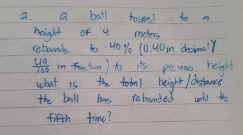 2. A ball tossed to a
height of 4 meters
rebounds to 40% (0.40 in decimal/
40/100 in fraction) to its previous height
what is the total height/distance
the ball has rebounded until the
fifth time?